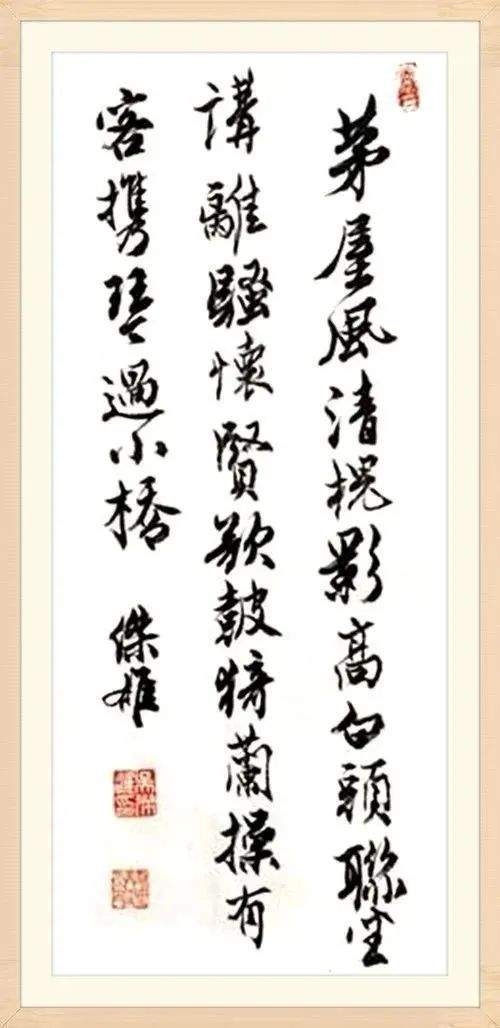 茅屋風清槐影高白頭聯坐
講離騷懷賢欲鼓猗蘭操有
客携琴過小橋
傑雄